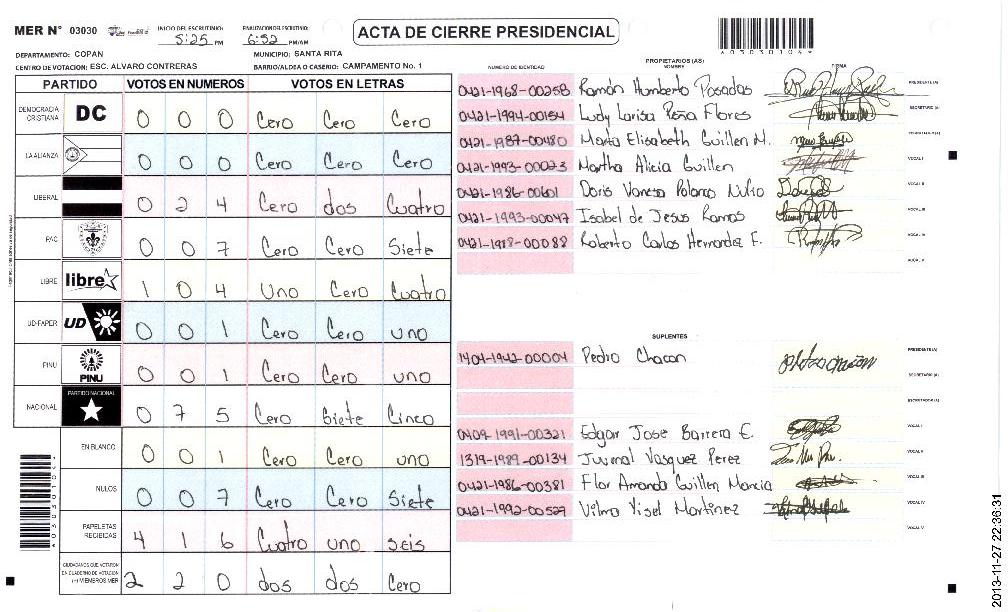 MER N° 03030
INICIO DEL ESCRUTINIO: 5:25 PM
FINALIZACION DEL ESCRUTINIO: 6:52 PM/AM
ACTA DE CIERRE PRESIDENCIAL
A03030104
DEPARTAMENTO: COPAN
MUNICIPIO: SANTA RITA
CENTRO DE VOTACION: ESC. ALVARO CONTRERAS
BARRIO/ALDEA O CASERIO: CAMPAMENTO No. 1
PARTIDO VOTOS EN NUMEROS VOTOS EN LETRAS
DEMOCRACIA CRISTIANA DC 0 0 0 Cero Cero Cero
LA ALIANZA 0 0 0 Cero Cero Cero
LIBERAL 0 2 4 Cero dos Cuatro
PAC 0 0 7 Cero Cero Siete
LIBRE libre 1 0 4 Uno Cero Cuatro
UD-FAPER UD 0 0 1 Cero Cero uno
PINU PINU 0 0 1 Cero Cero uno
NACIONAL PARTIDO NACIONAL 0 7 5 Cero Siete Cinco
EN BLANCO 0 0 1 Cero Cero uno
NULOS 0 0 7 Cero Cero Siete
PAPELETAS RECIBIDAS 4 1 6 Cuatro uno seis
CIUDADANOS QUE VOTARON EN CUADERNO DE VOTACION (+) MIEMBROS MER 2 2 0 dos dos Cero
PROPIETARIOS (AS)
NUMERO DE IDENTIDAD NOMBRE FIRMA
0421-1968-00258 Ramón Humberto Posadas PRESIDENTE (A)
0421-1994-00154 Ludy Larisa Peña Flores SECRETARIO (A)
0421-1987-00480 Marta Elisabeth Guillen M.
0421-1993-00023 Martha Alicia Guillen VOCAL I
0421-1986-00601 Doris Vanesa Polanco VOCAL II
0421-1993-00047 Isabel de Jesus Ramos VOCAL III
0421-1918-00088 Roberto Carlos Hernandez F. VOCAL IV
VOCAL V
SUPLENTES
1404-1942-00004 Pedro Chacon PRESIDENTE (A)
SECRETARIO (A)
0409-1991-00321 Edgar Jose Barrera E. VOCAL I
1319-1989-00134 Juvinal Vasquez Perez
0421-1986-00381 Flor Amanda Guillen Mancia VOCAL III
0421-1992-00527 Vilma Yisel Martinez VOCAL IV
VOCAL V
A03030104
2013-11-27 22:36:31